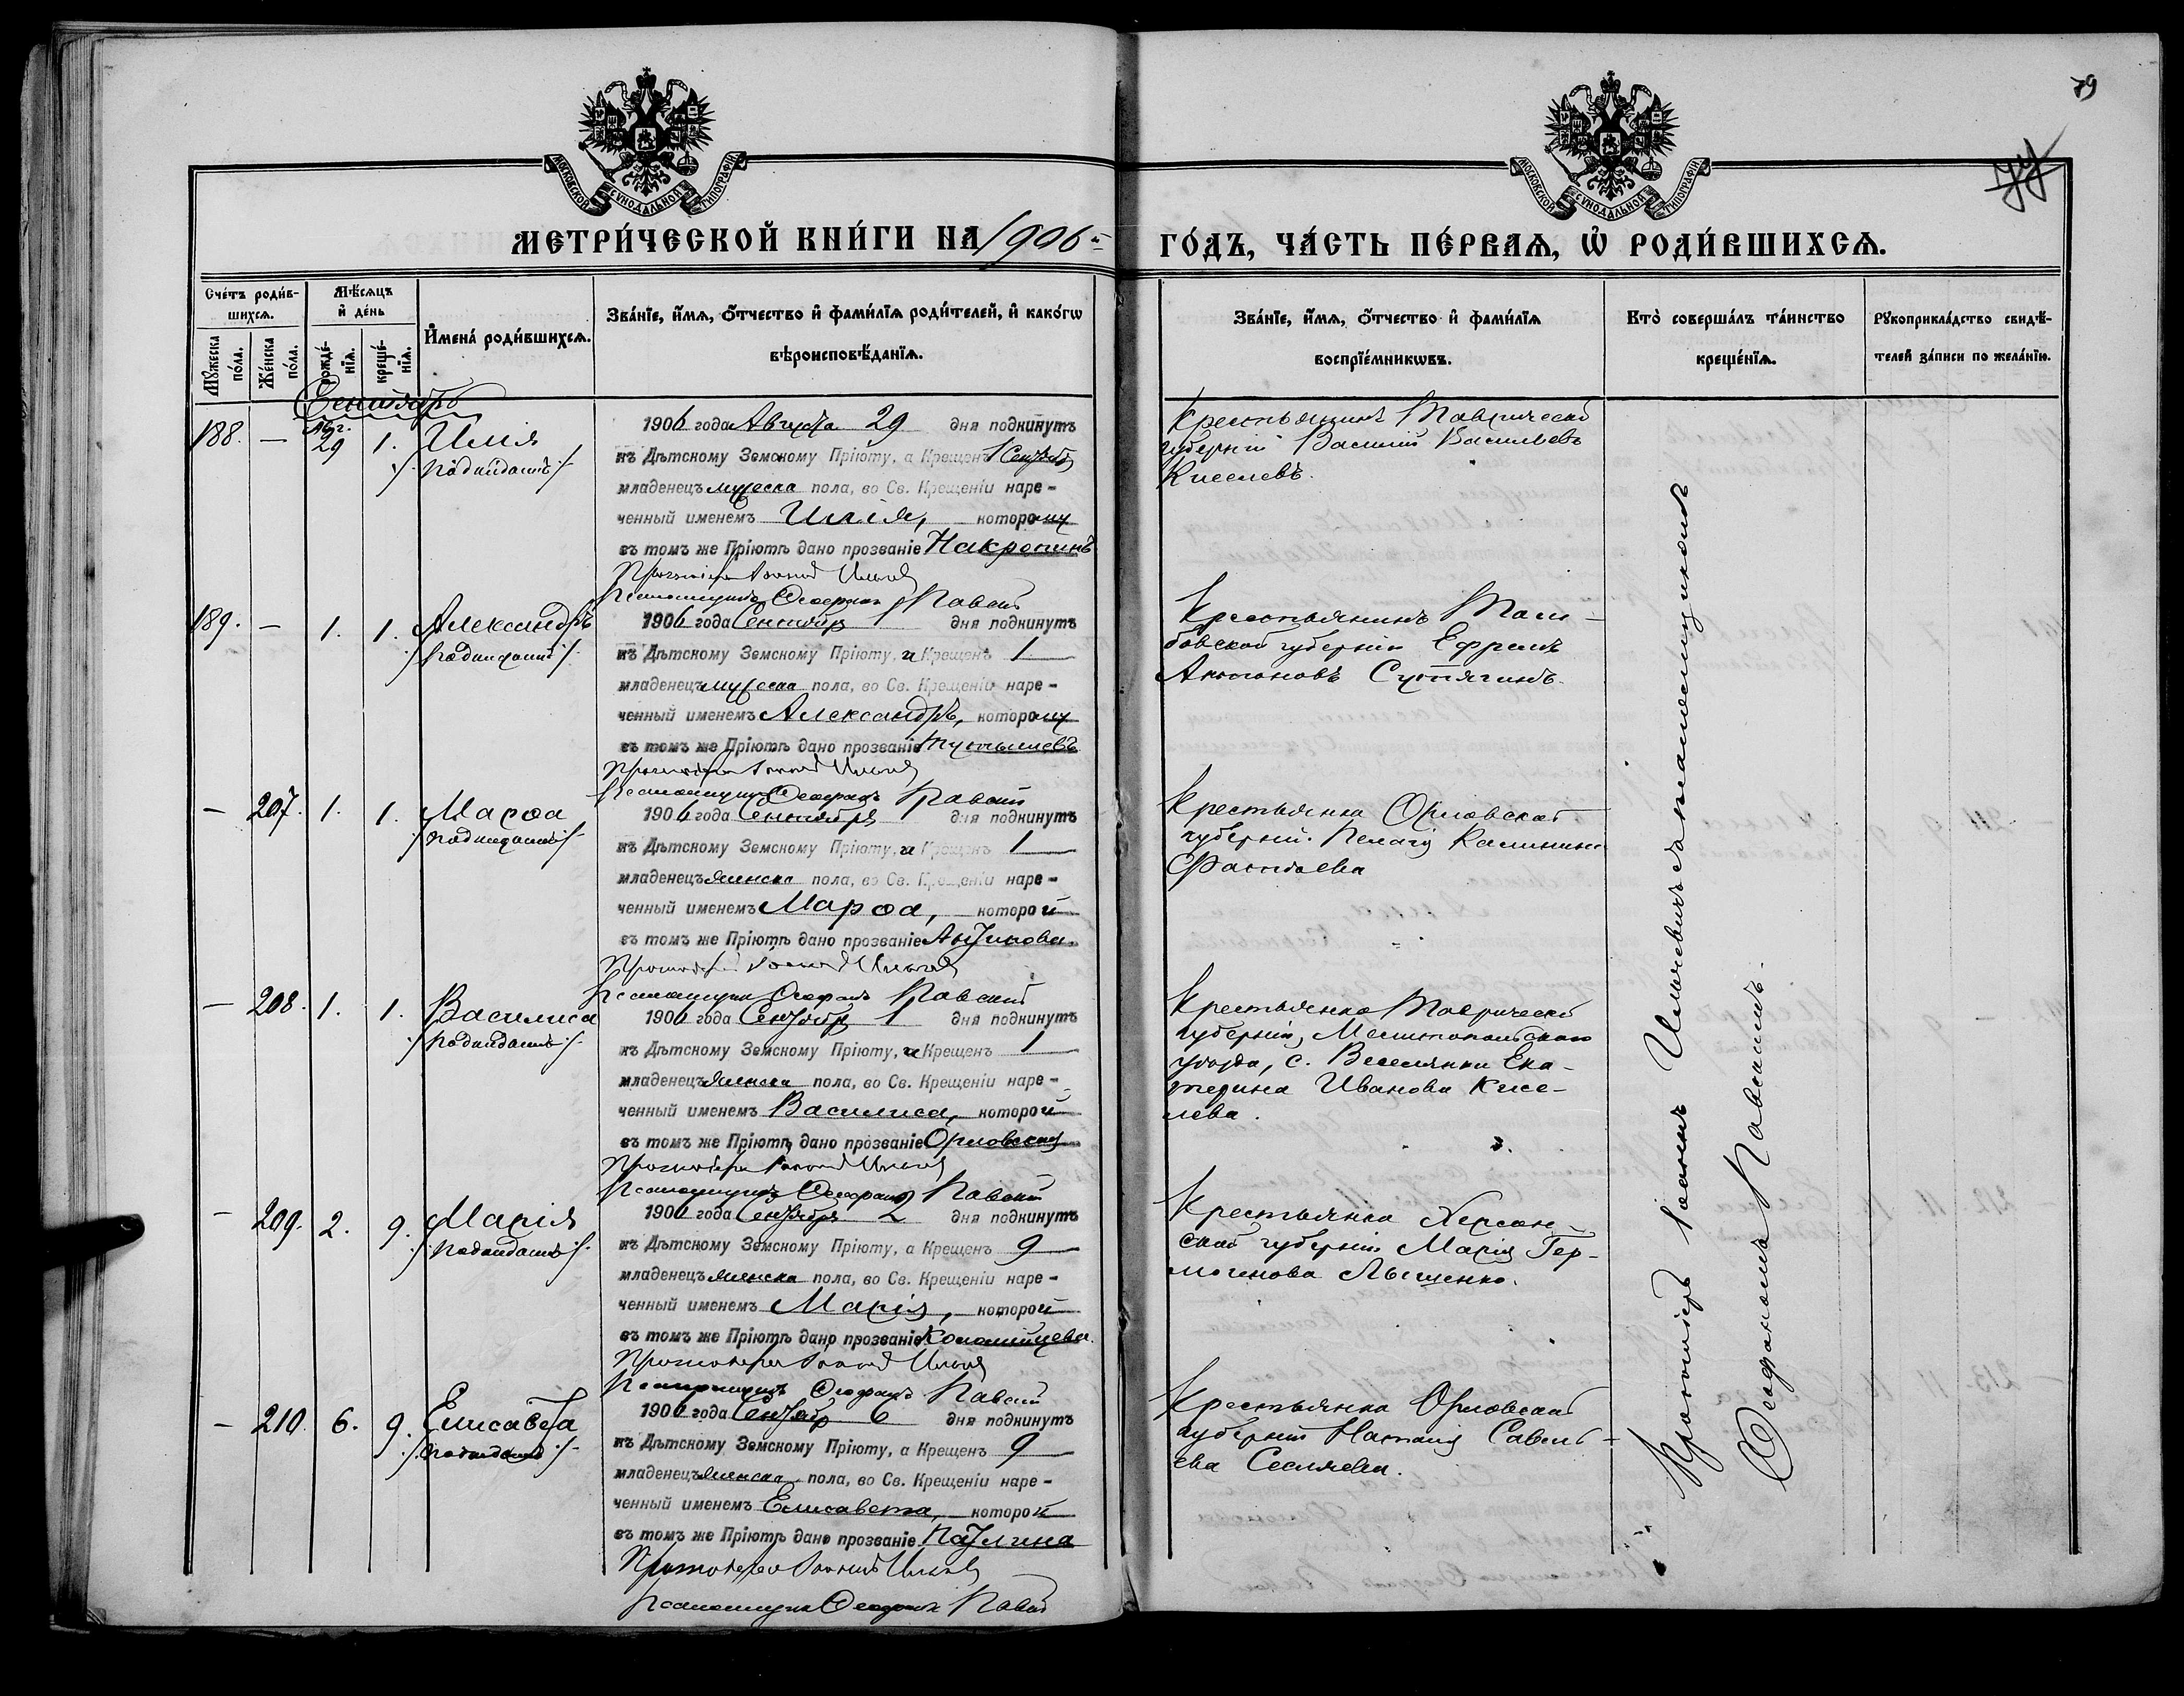 79
МОСКОВСКОЙ СУНОДАЛЬНОЙ ТИПОГРАФІИ
МОСКОВСКОЙ СУНОДАЛЬНОЙ ТИПОГРАФІИ
МЕТРИ́ЧЕСКОЙ КНИ́ГИ НА 1906 й
ГО́ДЪ, ЧА́СТЬ ПЕ́РВАѦ, Ѡ҆ РОДИ́ВШИХСѦ.
Сче́тъ роди́в-
шихсѧ.
Мꙋ́жеска по́ла.
Же́нска по́ла.
Мѣ́сѧцъ
и҆ де́нь
рожде́-
нїѧ.
креще́-
нїѧ.
И҆мена̀ роди́вшихсѧ.
Зва́нїе, и҆́мѧ, ѻ҆́тчество и҆ фами́лїѧ роди́телей, и҆ како́гѡ
вѣроисповѣ́данїѧ.
Зва́нїе, и҆́мѧ, ѻ҆́тчество и҆ фами́лїѧ
воспрїе́мникѡвъ.
Кто̀ соверша́лъ та́инство
креще́нїѧ.
Рꙋкоприкла́дство свидѣ́-
телей за́писи по жела́нїю.
Сентябрь
188. — Авг. 29 1. Илія
/. подкидышъ ./
1906 года Августа 29 дня подкинутъ
къ Дѣтскому Земскому Пріюту, а Крещенъ 1 Сентябр
младенецъ мужеска пола, во Св. Крещеніи наре-
ченный именемъ Илія, которому
въ томъ же Пріютѣ дано прозваніе Накропинъ
Протоіерей Іоаннъ
Псаломщикъ Ѳеофанъ Павскій
Крестьянинъ Таврической
губерніи Василій Васильевъ
Киселевъ.
189. — 1. 1. Александръ
/. подкидышъ ./
1906 года Сентября 1 дня подкинутъ
къ Дѣтскому Земскому Пріюту, и Крещенъ 1
младенецъ мужеска пола, во Св. Крещеніи наре-
ченный именемъ Александръ, которому
въ томъ же Пріютѣ дано прозваніе
Протоіерей Іоаннъ
Псаломщикъ Ѳеофанъ Павскій
Крестьянинъ Там-
бовской губерніи Ефремъ
Антоновъ Сутягинъ.
— 207. 1. 1. Марѳа
/. подкидышъ ./
1906 года Сентября 1 дня подкинутъ
къ Дѣтскому Земскому Пріюту, и Крещенъ 1
младенецъ женска пола, во Св. Крещеніи наре-
ченный именемъ Марѳа, которой
въ томъ же Пріютѣ дано прозваніе
Протоіерей Іоаннъ
Псаломщикъ Ѳеофанъ Павскій
Крестьянка Орловской
губерніи. Пелагія Калинина
— 208. 1. 1. Василиса
/. подкидышъ ./
1906 года Сентябр 1 дня подкинутъ
къ Дѣтскому Земскому Пріюту, и Крещенъ 1
младенецъ женска пола, во Св. Крещеніи наре-
ченный именемъ Василиса, которой
въ томъ же Пріютѣ дано прозваніе Орловская
Протоіерей Іоаннъ
Псаломщикъ Ѳеофанъ Павскій
Крестьянка Таврической
губерніи, Мелитопольскаго
уѣзда, с. Веселянки Ека-
терина Иванова Кисе-
лева.
— 209. 2. 9. Марія
/. подкидышъ ./
1906 года Сентября 2 дня подкинутъ
къ Дѣтскому Земскому Пріюту, а Крещенъ 9
младенецъ женска пола, во Св. Крещеніи наре-
ченный именемъ Марія, которой
въ томъ же Пріютѣ дано прозваніе Коломійцева.
Протоіерей Іоаннъ
Псаломщикъ Ѳеофанъ Павскій
Крестьянка Херсон-
ской губерніи Марія Гер-
могенова Лыщенко.
— 210. 6. 9. Елисавета
/. подкидышъ ./
1906 года Сентябр 6 дня подкинутъ
къ Дѣтскому Земскому Пріюту, а Крещенъ 9
младенецъ женска пола, во Св. Крещеніи наре-
ченный именемъ Елисавета, которой
въ томъ же Пріютѣ дано прозваніе
Протоіерей Іоаннъ
Псаломщикъ Ѳеофанъ Павскій
Крестьянка Орловской
губерніи Наталія Савель-
ева
Протоіерей Іоаннъ Ильичевичъ съ псаломщикомъ
Ѳеофаномъ Павскимъ.